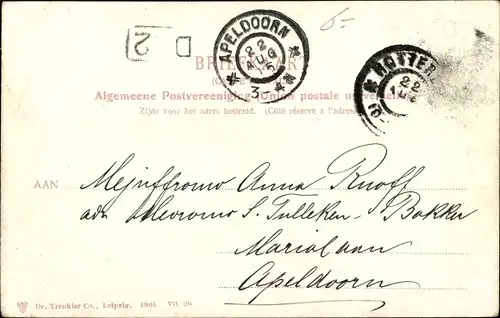 6-
D 2
APELDOORN
22
AUG
05
3-4N
HATTEM
22
10
BRIEFKAART
Algemeene Postvereeniging (Union postale universelle)
Zijde voor het adres bestemd. (Côté réservé à l'adresse)
AAN
Mejuffrouw Anna Ruoff
adr Mevrouw S. Tulleken-Bakker
Marialaan
Apeldoorn
Dr. Trenkler Co., Leipzig. 1905 VII. 20